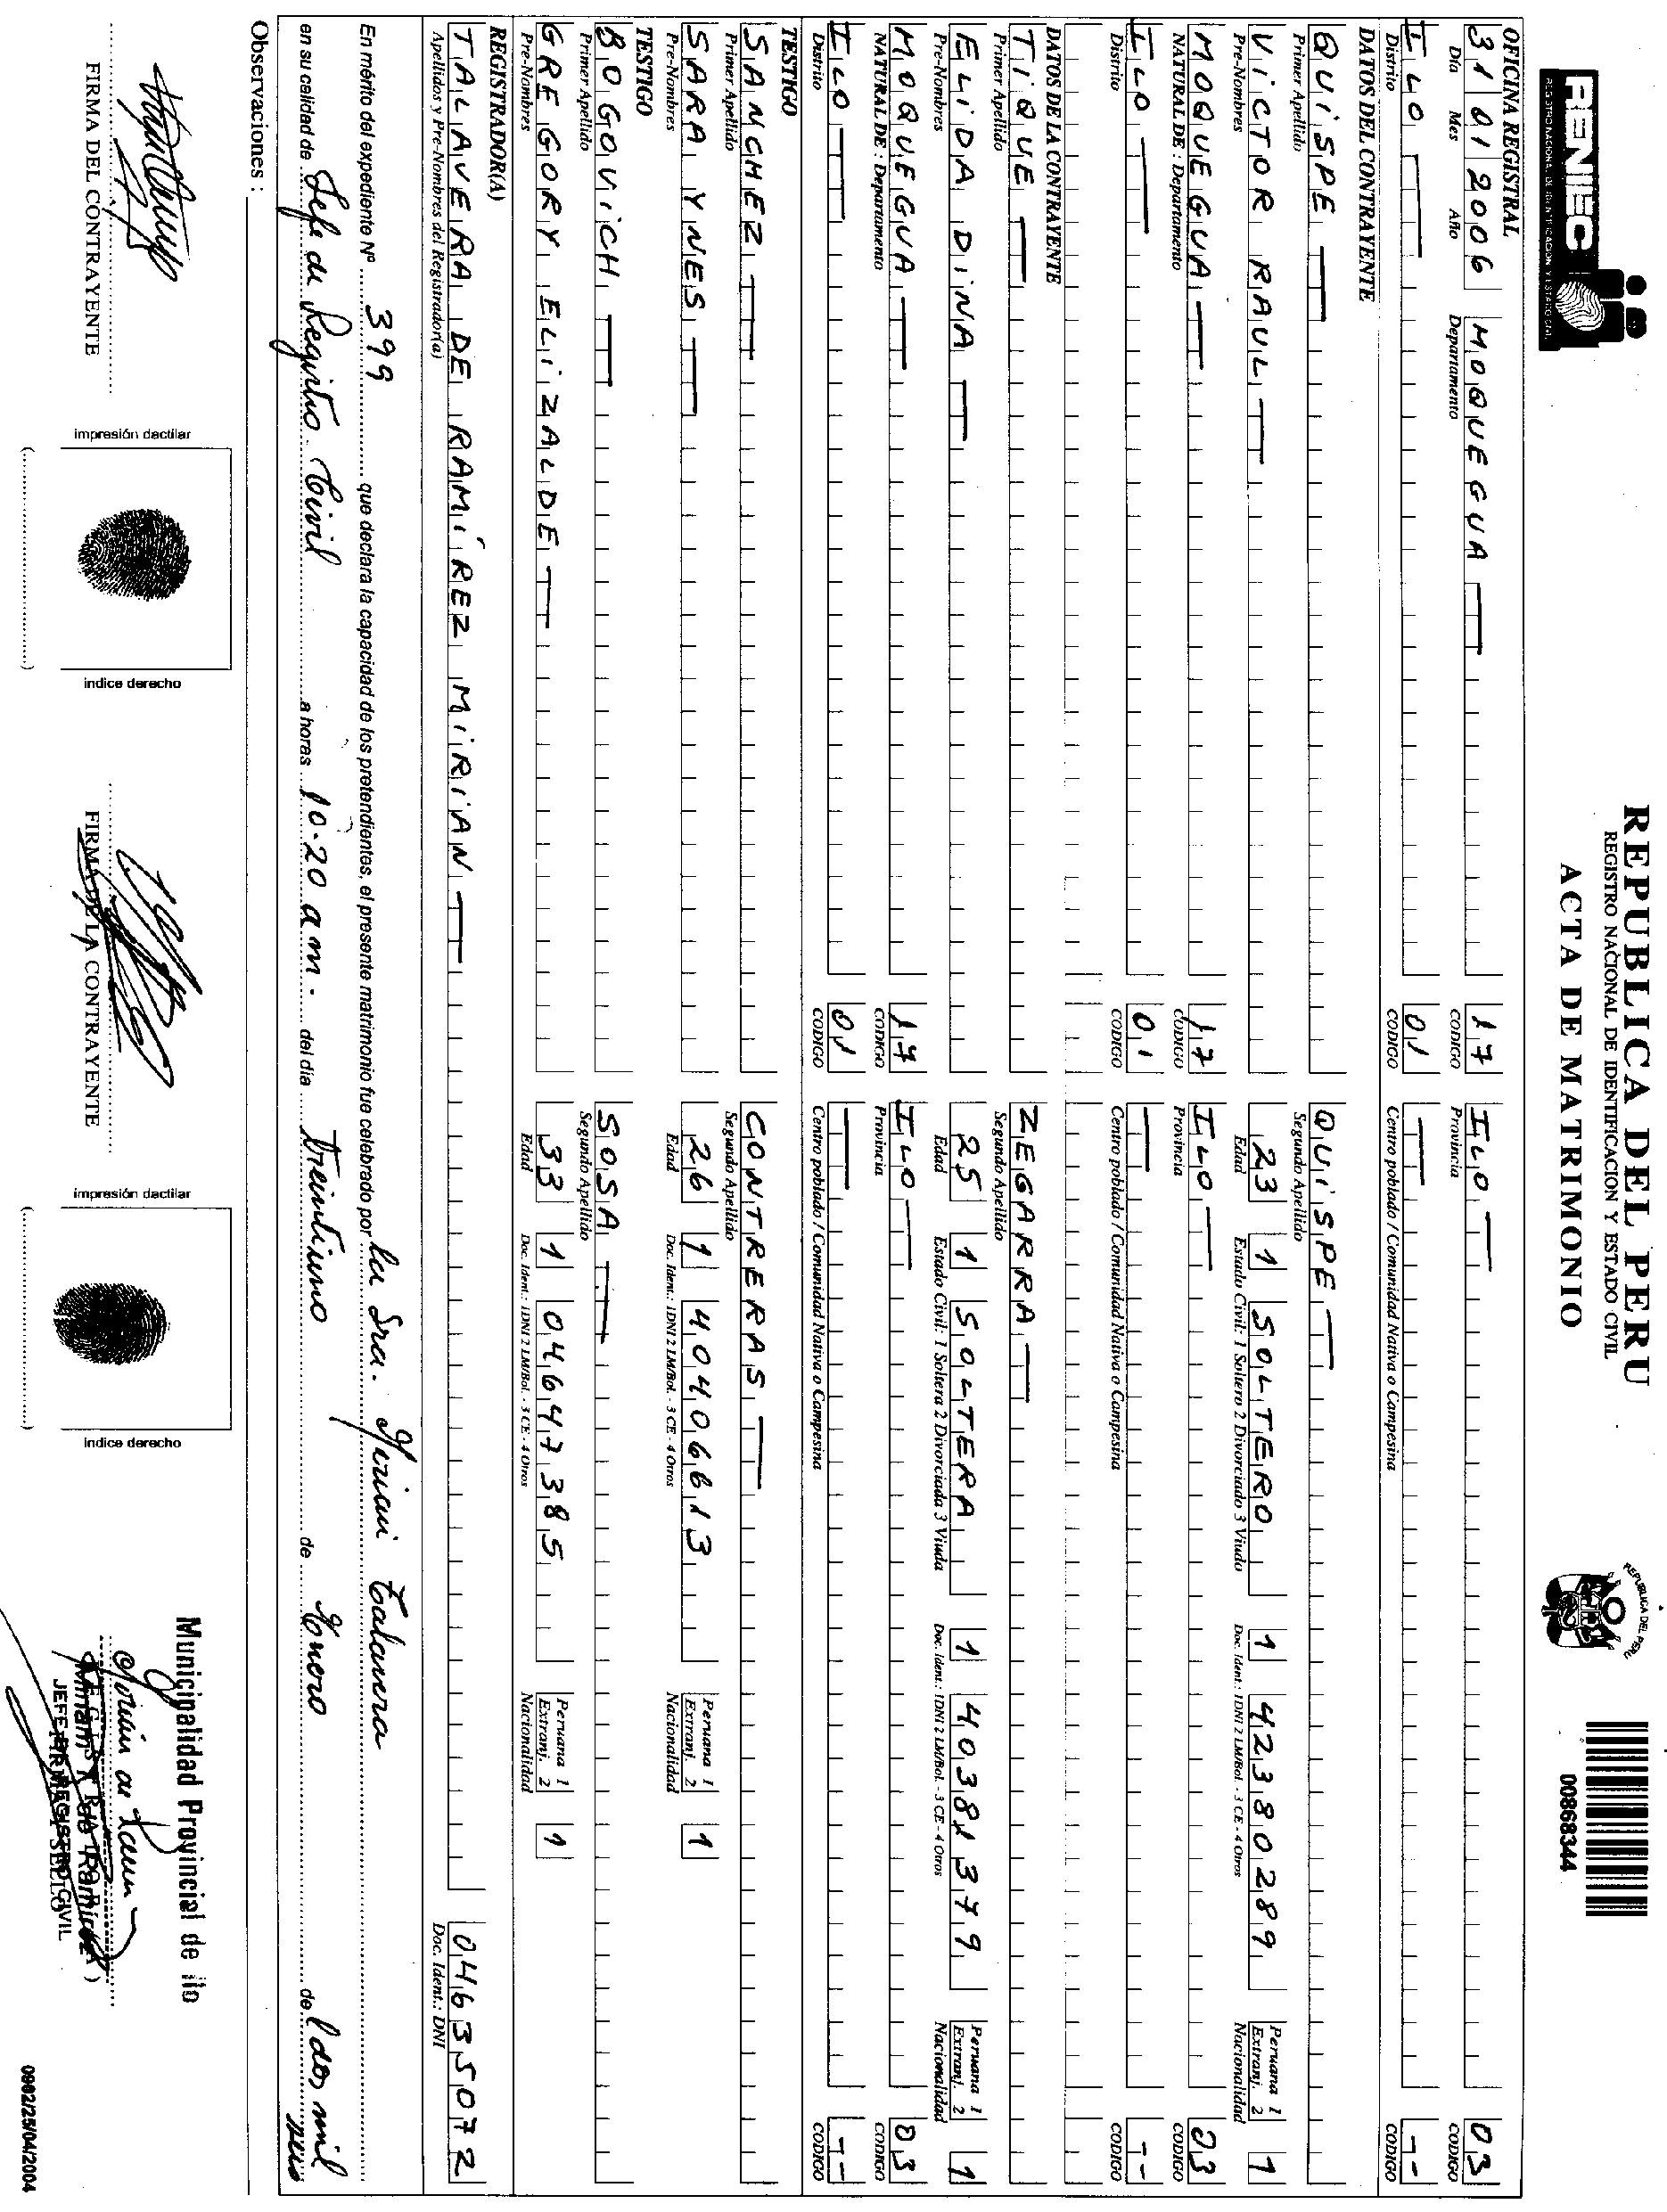 RENIEC
REGISTRO NACIONAL DE IDENTIFICACION Y ESTADO CIVIL
REPUBLICA DEL PERU
REGISTRO NACIONAL DE IDENTIFICACION Y ESTADO CIVIL
ACTA DE MATRIMONIO
REPUBLICA DEL PERU
00868344
OFICINA REGISTRAL
31 01 2006 MOQUEGUA 17 ILO 03
Día Mes Año Departamento CODIGO Provincia CODIGO
ILO 01 — --
Distrito CODIGO Centro poblado / Comunidad Nativa o Campesina CODIGO
DATOS DEL CONTRAYENTE
QUiSPE QUiSPE
Primer Apellido Segundo Apellido
ViCTOR RAUL 23 1 SOLTERO 1 42380289 Peruana 1 Extranj. 2 1
Pre-Nombres Edad Estado Civil: 1 Soltero 2 Divorciado 3 Viudo Doc. Ident.: 1DNI 2 LM/Bol. - 3 CE - 4 Otros Nacionalidad
MOQUEGUA 17 ILO 03
NATURAL DE : Departamento CODIGO Provincia CODIGO
ILO 01 — --
Distrito CODIGO Centro poblado / Comunidad Nativa o Campesina CODIGO
DATOS DE LA CONTRAYENTE
TiQUE ZEGARRA
Primer Apellido Segundo Apellido
ELiDA DiNA 25 1 SOLTERA 1 40381379 Peruana 1 Extranj. 2 1
Pre-Nombres Edad Estado Civil: 1 Soltera 2 Divorciada 3 Viuda Doc. Ident.: 1DNI 2 LM/Bol. - 3 CE - 4 Otros Nacionalidad
MOQUEGUA 17 ILO 03
NATURAL DE : Departamento CODIGO Provincia CODIGO
ILO 01 — --
Distrito CODIGO Centro poblado / Comunidad Nativa o Campesina CODIGO
TESTIGO
SANCHEZ CONTRERAS
Primer Apellido Segundo Apellido
SARA YNES 26 1 40406613 Peruana 1 Extranj. 2 1
Pre-Nombres Edad Doc. Ident.: 1DNI 2 LM/Bol. - 3 CE - 4 Otros Nacionalidad
TESTIGO
BOGOViCH SOSA
Primer Apellido Segundo Apellido
GREGORY ELiZALDE 33 1 04647385 Peruana 1 Extranj. 2 1
Pre-Nombres Edad Doc. Ident.: 1DNI 2 LM/Bol. - 3 CE - 4 Otros Nacionalidad
REGISTRADOR(A)
TALAVERA DE RAMÍREZ MiRiAN 04635072
Apellidos y Pre-Nombres del Registrador(a) Doc. Ident.: DNI
En mérito del expediente Nº 399 que declara la capacidad de los pretendientes, el presente matrimonio fue celebrado por la Sra. Mirian Talavera
en su calidad de Jefe de Registro Civil a horas 10.20 am. del día treintiuno de Enero de dos mil seis
Observaciones :
Municipalidad Provincial de Ilo
FIRMA DEL CONTRAYENTE
impresión dactilar
indice derecho
FIRMA DE LA CONTRAYENTE
impresión dactilar
indice derecho
Miriam de Ramirez
JEFE REGISTRO CIVIL
0902/25/04/2004